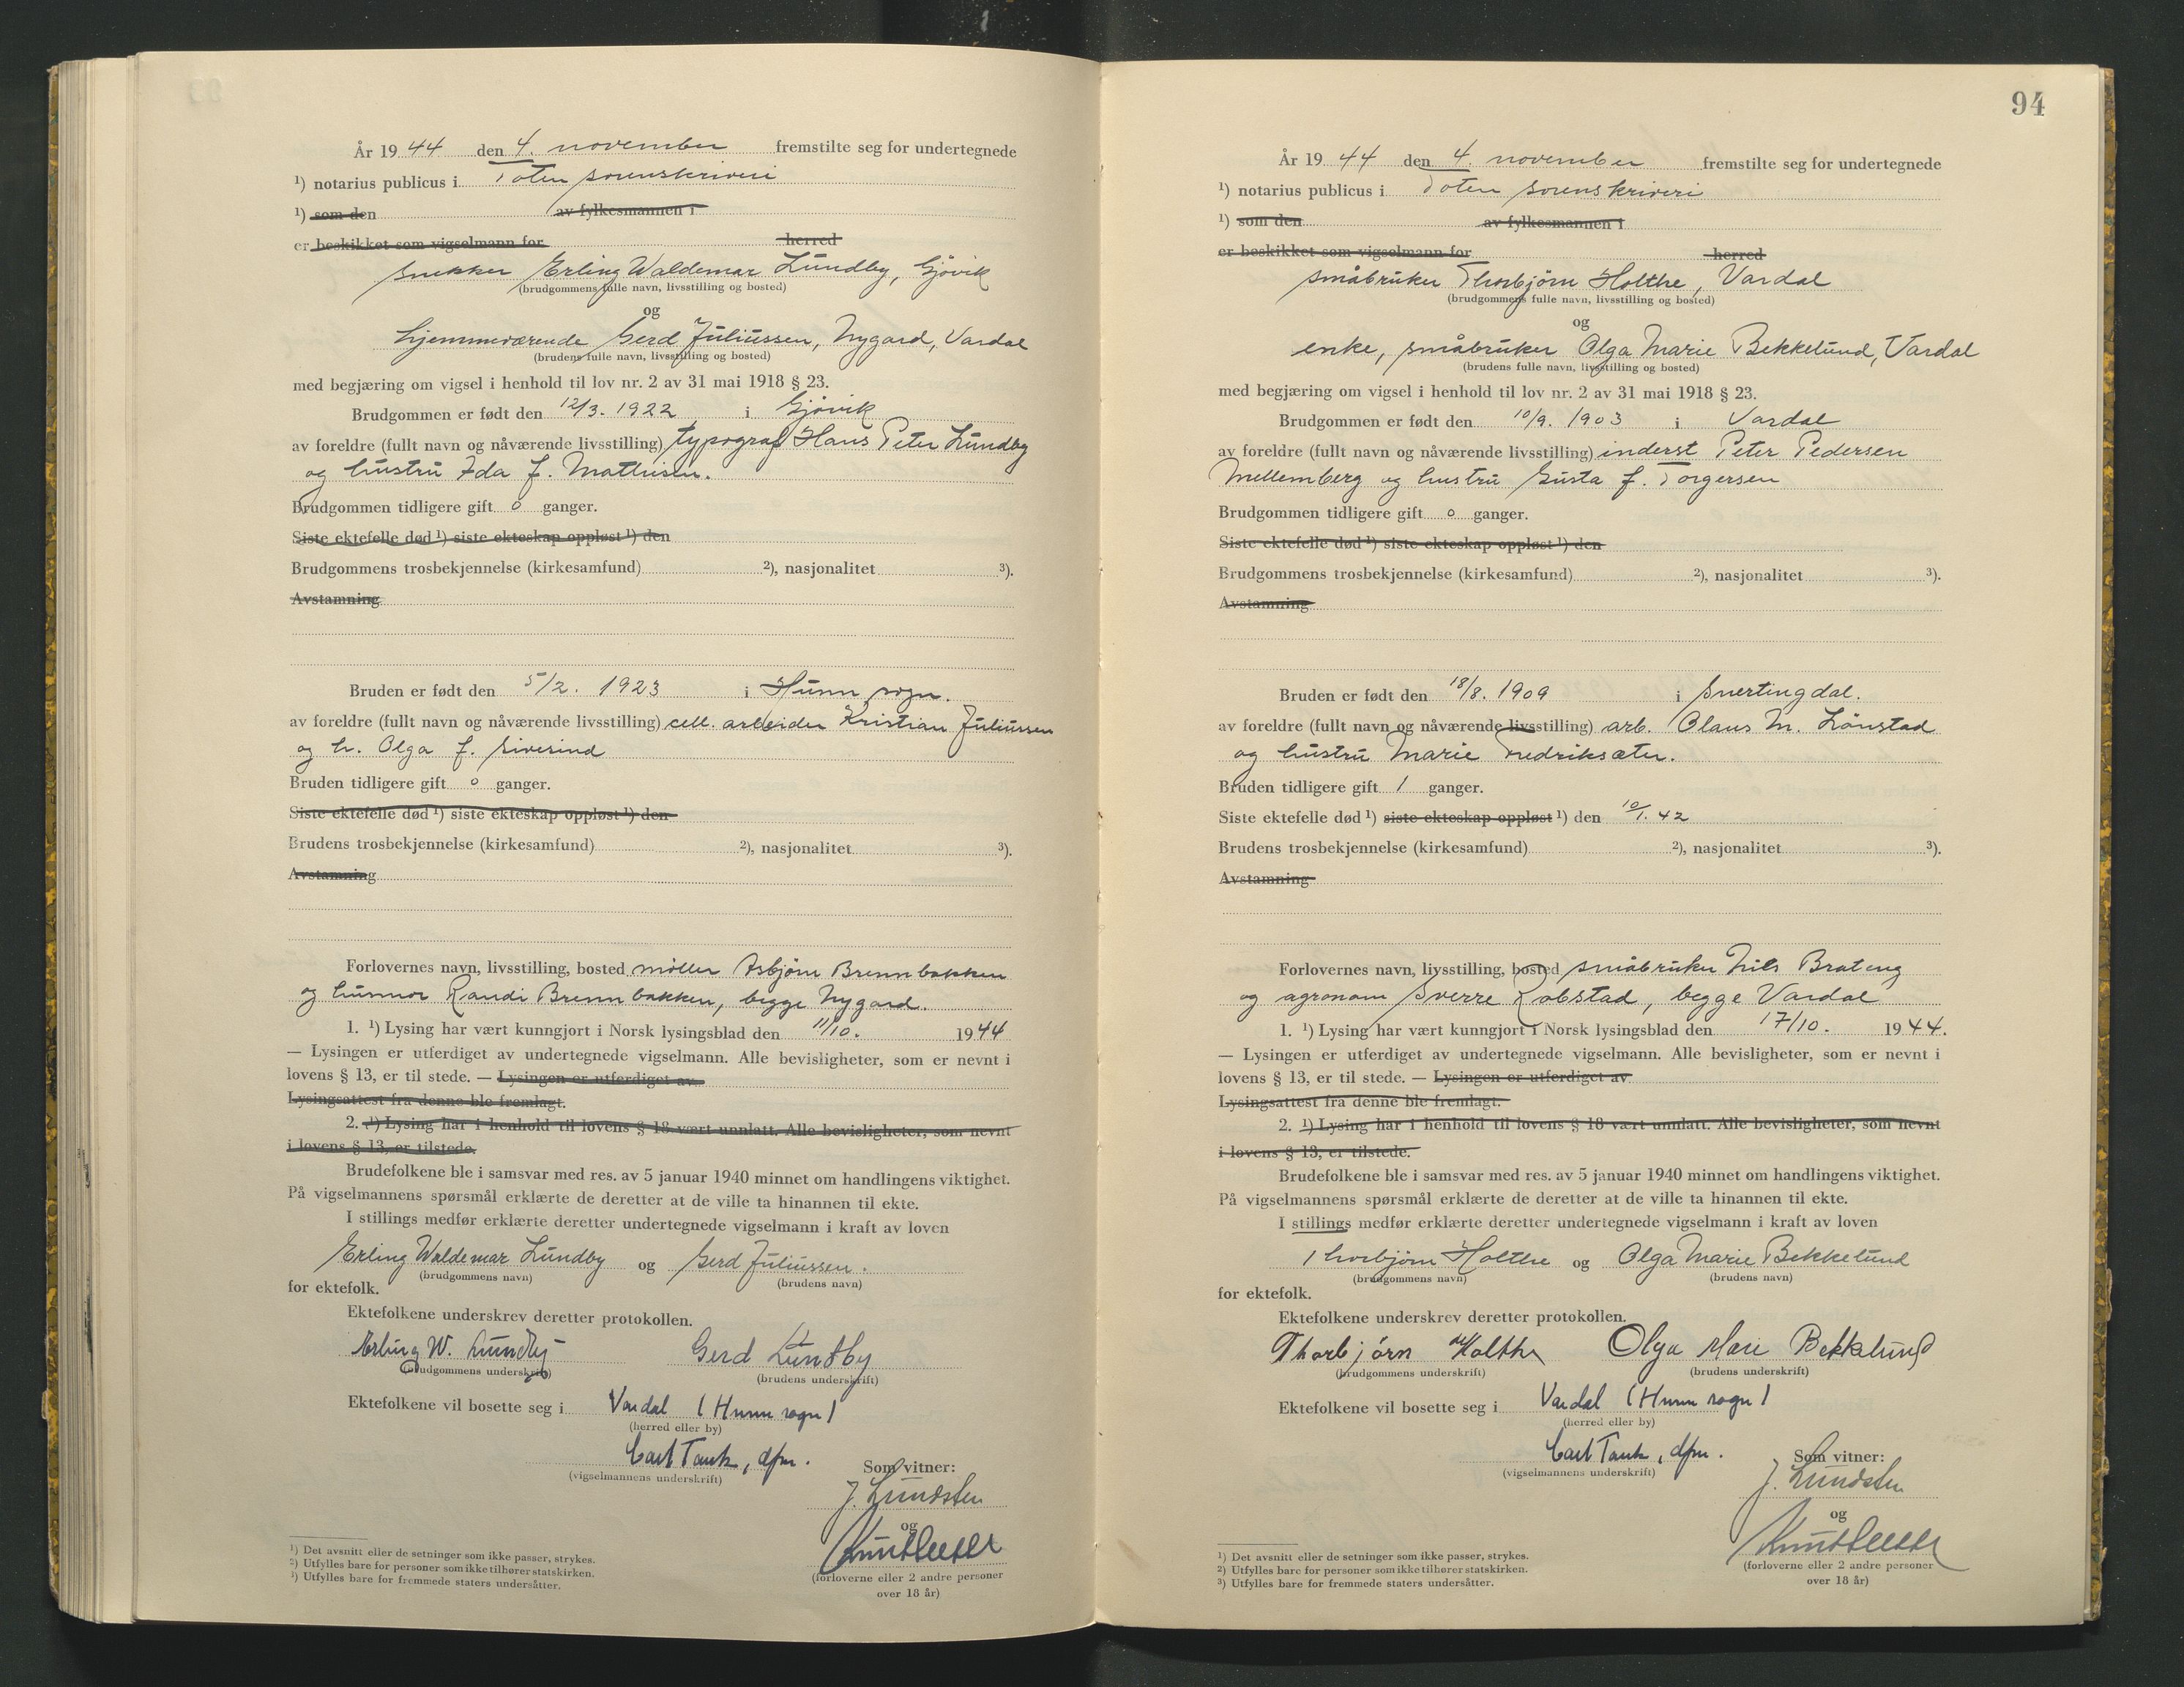 År 1944 den 4. november fremstilte seg for undertegnede
¹) notarius publicus i Toten sorenskriveri
¹) som den av fylkesmannen i
er beskikket som vigselmann for herred
snekker Erling Waldemar Lundby, Gjøvik
(brudgommens fulle navn, livsstilling og bosted)
og
hjemmeværende Gerd Juliussen, Nygard, Vardal
(brudens fulle navn, livsstilling og bosted)
med begjæring om vigsel i henhold til lov nr. 2 av 31 mai 1918 § 23.
Brudgommen er født den 12/3. 1922 i Gjøvik
av foreldre (fullt navn og nåværende livsstilling) typograf Hans Peter Lundby
og hustru Ida f. Mathisen.
Brudgommen tidligere gift 0 ganger.
Siste ektefelle død ¹) siste ekteskap oppløst ¹) den
Brudgommens trosbekjennelse (kirkesamfund) ²), nasjonalitet ³).
Avstamning
Bruden er født den 5/2. 1923 i Hunn sogn.
av foreldre (fullt navn og nåværende livsstilling) cell. arbeider Kristian Juliussen
og h. Olga f. Sivesind
Bruden tidligere gift 0 ganger.
Siste ektefelle død ¹) siste ekteskap oppløst ¹) den
Brudens trosbekjennelse (kirkesamfund) ²), nasjonalitet ³).
Avstamning
Forlovernes navn, livsstilling, bosted møller Asbjørn Brennbakken
og husmor Randi Brennbakken, begge Nygard.
1. ¹) Lysing har vært kunngjort i Norsk lysingsblad den 11/10. 1944
— Lysingen er utferdiget av undertegnede vigselmann. Alle bevisligheter, som er nevnt i
lovens § 13, er til stede. — Lysingen er utferdiget av
Lysingsattest fra denne ble fremlagt.
2. ¹) Lysing har i henhold til lovens § 18 vært unnlatt. Alle bevisligheter, som nevnt
i lovens § 13, er tilstede.
Brudefolkene ble i samsvar med res. av 5 januar 1940 minnet om handlingens viktighet.
På vigselmannens spørsmål erklærte de deretter at de ville ta hinannen til ekte.
I stillings medfør erklærte deretter undertegnede vigselmann i kraft av loven
Erling Waldemar Lundby og Gerd Juliussen.
(brudgommens navn) (brudens navn)
for ektefolk.
Ektefolkene underskrev deretter protokollen.
Erling W. Lundby Gerd Lundby
(brudgommens underskrift) (brudens underskrift)
Ektefolkene vil bosette seg i Vardal (Hunn sogn)
(herred eller by)
Carl Tank, dfm.
(vigselmannens underskrift)
Som vitner:
J. Lundsten
og
(forloverne eller 2 andre personer
over 18 år)
¹) Det avsnitt eller de setninger som ikke passer, strykes.
²) Utfylles bare for personer som ikke tilhører statskirken.
³) Utfylles bare for fremmede staters undersåtter.
94
År 1944 den 4. november fremstilte seg for undertegnede
¹) notarius publicus i Toten sorenskriveri
¹) som den av fylkesmannen i
er beskikket som vigselmann for herred
småbruker Thorbjørn Holthe, Vardal
(brudgommens fulle navn, livsstilling og bosted)
og
enke, småbruker Olga Marie Bekkelund, Vardal
(brudens fulle navn, livsstilling og bosted)
med begjæring om vigsel i henhold til lov nr. 2 av 31 mai 1918 § 23.
Brudgommen er født den 10/9. 1903 i Vardal
av foreldre (fullt navn og nåværende livsstilling) inderst Peter Pedersen
Mellemberg og hustru Gusta f. Torgersen
Brudgommen tidligere gift 0 ganger.
Siste ektefelle død ¹) siste ekteskap oppløst ¹) den
Brudgommens trosbekjennelse (kirkesamfund) ²), nasjonalitet ³).
Avstamning
Bruden er født den 18/8. 1909 i Snertingdal.
av foreldre (fullt navn og nåværende livsstilling) arb. Olaus M. Lønstad
og hustru Marie Fredriksæter.
Bruden tidligere gift 1 ganger.
Siste ektefelle død ¹) siste ekteskap oppløst ¹) den 10/1. 42
Brudens trosbekjennelse (kirkesamfund) ²), nasjonalitet ³).
Avstamning
Forlovernes navn, livsstilling, bosted småbruker Nils Brateng
og agronom Sverre Robstad, begge Vardal
1. ¹) Lysing har vært kunngjort i Norsk lysingsblad den 17/10. 1944.
— Lysingen er utferdiget av undertegnede vigselmann. Alle bevisligheter, som er nevnt i
lovens § 13, er til stede. — Lysingen er utferdiget av
Lysingsattest fra denne ble fremlagt.
2. ¹) Lysing har i henhold til lovens § 18 vært unnlatt. Alle bevisligheter, som nevnt
i lovens § 13, er tilstede.
Brudefolkene ble i samsvar med res. av 5 januar 1940 minnet om handlingens viktighet.
På vigselmannens spørsmål erklærte de deretter at de ville ta hinannen til ekte.
I stillings medfør erklærte deretter undertegnede vigselmann i kraft av loven
Thorbjørn Holthe og Olga Marie Bekkelund
(brudgommens navn) (brudens navn)
for ektefolk.
Ektefolkene underskrev deretter protokollen.
Thorbjørn Holthe Olga Marie Bekkelund
(brudgommens underskrift) (brudens underskrift)
Ektefolkene vil bosette seg i Vardal (Hunn sogn)
(herred eller by)
Carl Tank, dfm.
(vigselmannens underskrift)
Som vitner:
J. Lundsten
og
(forloverne eller 2 andre personer
over 18 år)
¹) Det avsnitt eller de setninger som ikke passer, strykes.
²) Utfylles bare for personer som ikke tilhører statskirken.
³) Utfylles bare for fremmede staters undersåtter.